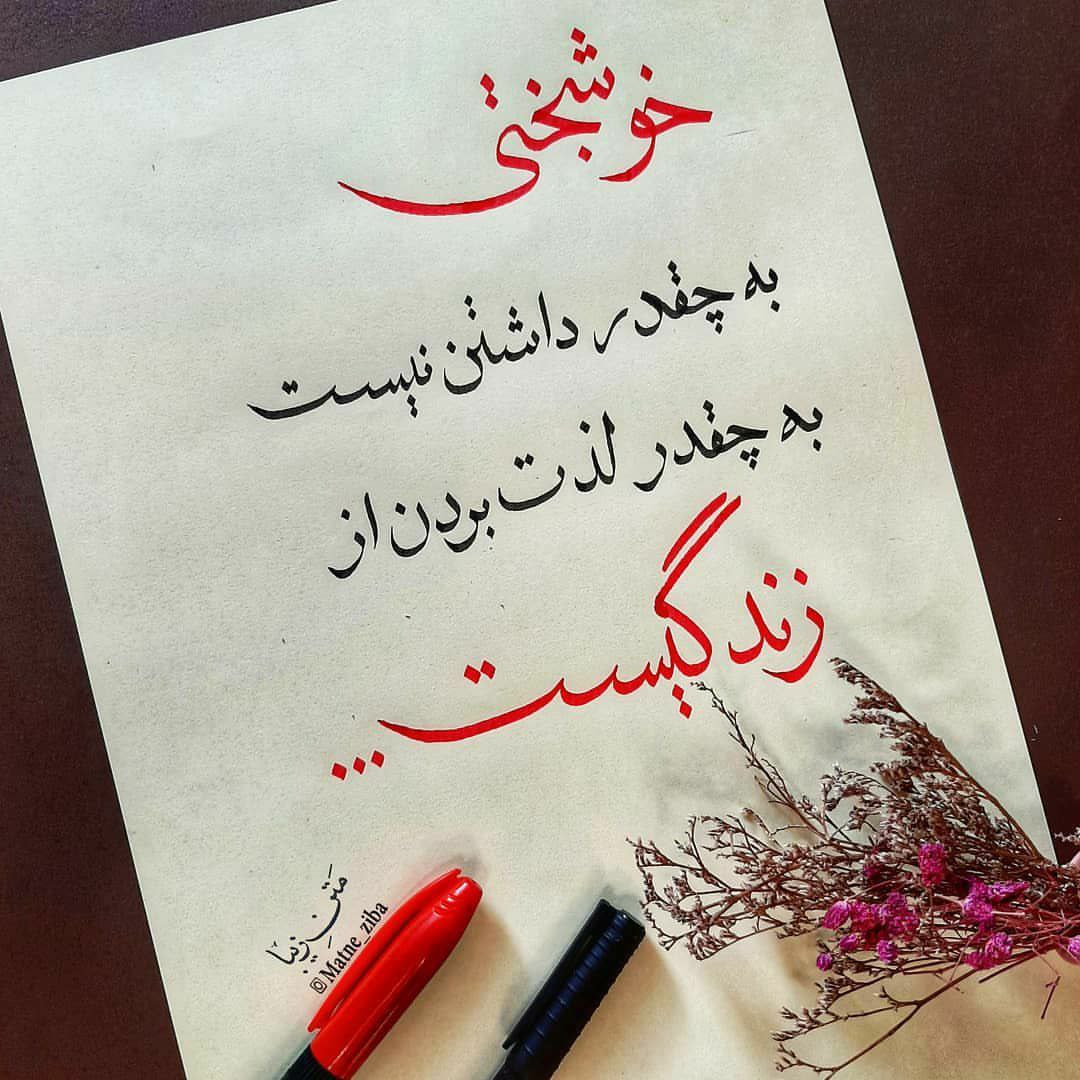 خوشبختی
به چقدر داشتن نیست
به چقدر لذت بردن از
زندگیست...
مَتنِ زیبا
@Matne_ziba